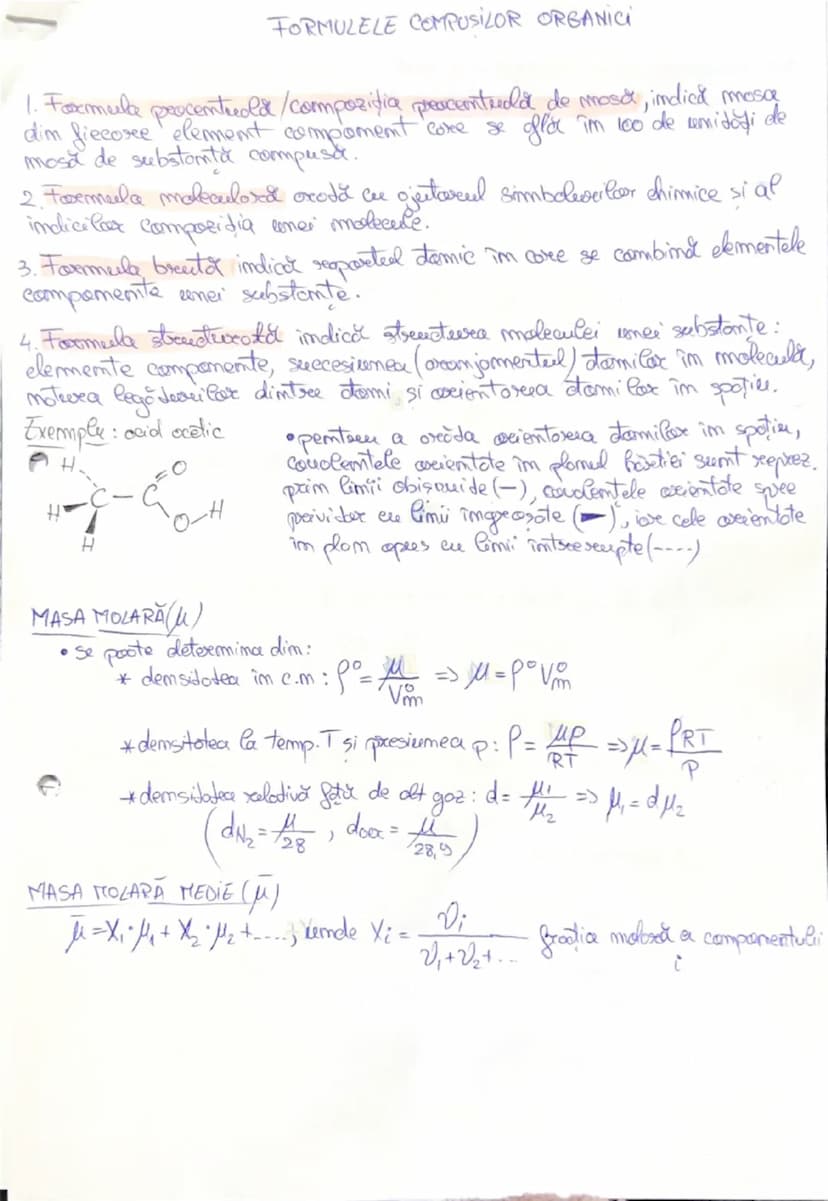 FORMULELE COMPUȘILOR ORGANICI
1. Formula procentuală/compoziția procentuală de masă, indică masa
din fiecare element component care se află în 100 de unități de
masă de substanță compusă.
2. Formula moleculară arată cu ajutorul simbolurilor chimice și al
indicilor compoziția unei molecule.
3. Formula brută indică raportul atomic în care se combină elementele
componente unei substanțe.
4. Formula structurală indică structura moleculei unei substanțe:
elemente componente, succesiunea (aranjamentul) atomilor în moleculă,
natura legăturilor dintre atomi și orientarea atomilor în spațiu.
Exemplu: acid acetic
H
H
H
C-C
O
O-H
• pentru a arăta orientarea atomilor în spațiu,
covalențele orientate în planul hârtiei sunt reprez.
prin linii obișnuite (-), covalențele orientate spre
privitor cu linii îngroșate (-), iar cele orientate
în plan opus cu linii întrerupte (----)
MASA MOLARĂ (μ)
• se poate determina din:
* densitatea în c.n: ρ° = μ/V°m => μ = ρ°V°m
* densitatea la temp. T și presiunea p: ρ = μp/RT => μ = ρRT/p
* densitatea relativă față de alt gaz: d = μ1/μ2 => μ1 = dμ2
(dN2 = μ/28, daer = μ/28,9)
MASA MOLARĂ MEDIE (μ̄)
μ̄ = X1·μ1 + X2·μ2 + ...., unde Xi = νi/(ν1+ν2+...) fracția molară a componentului
i